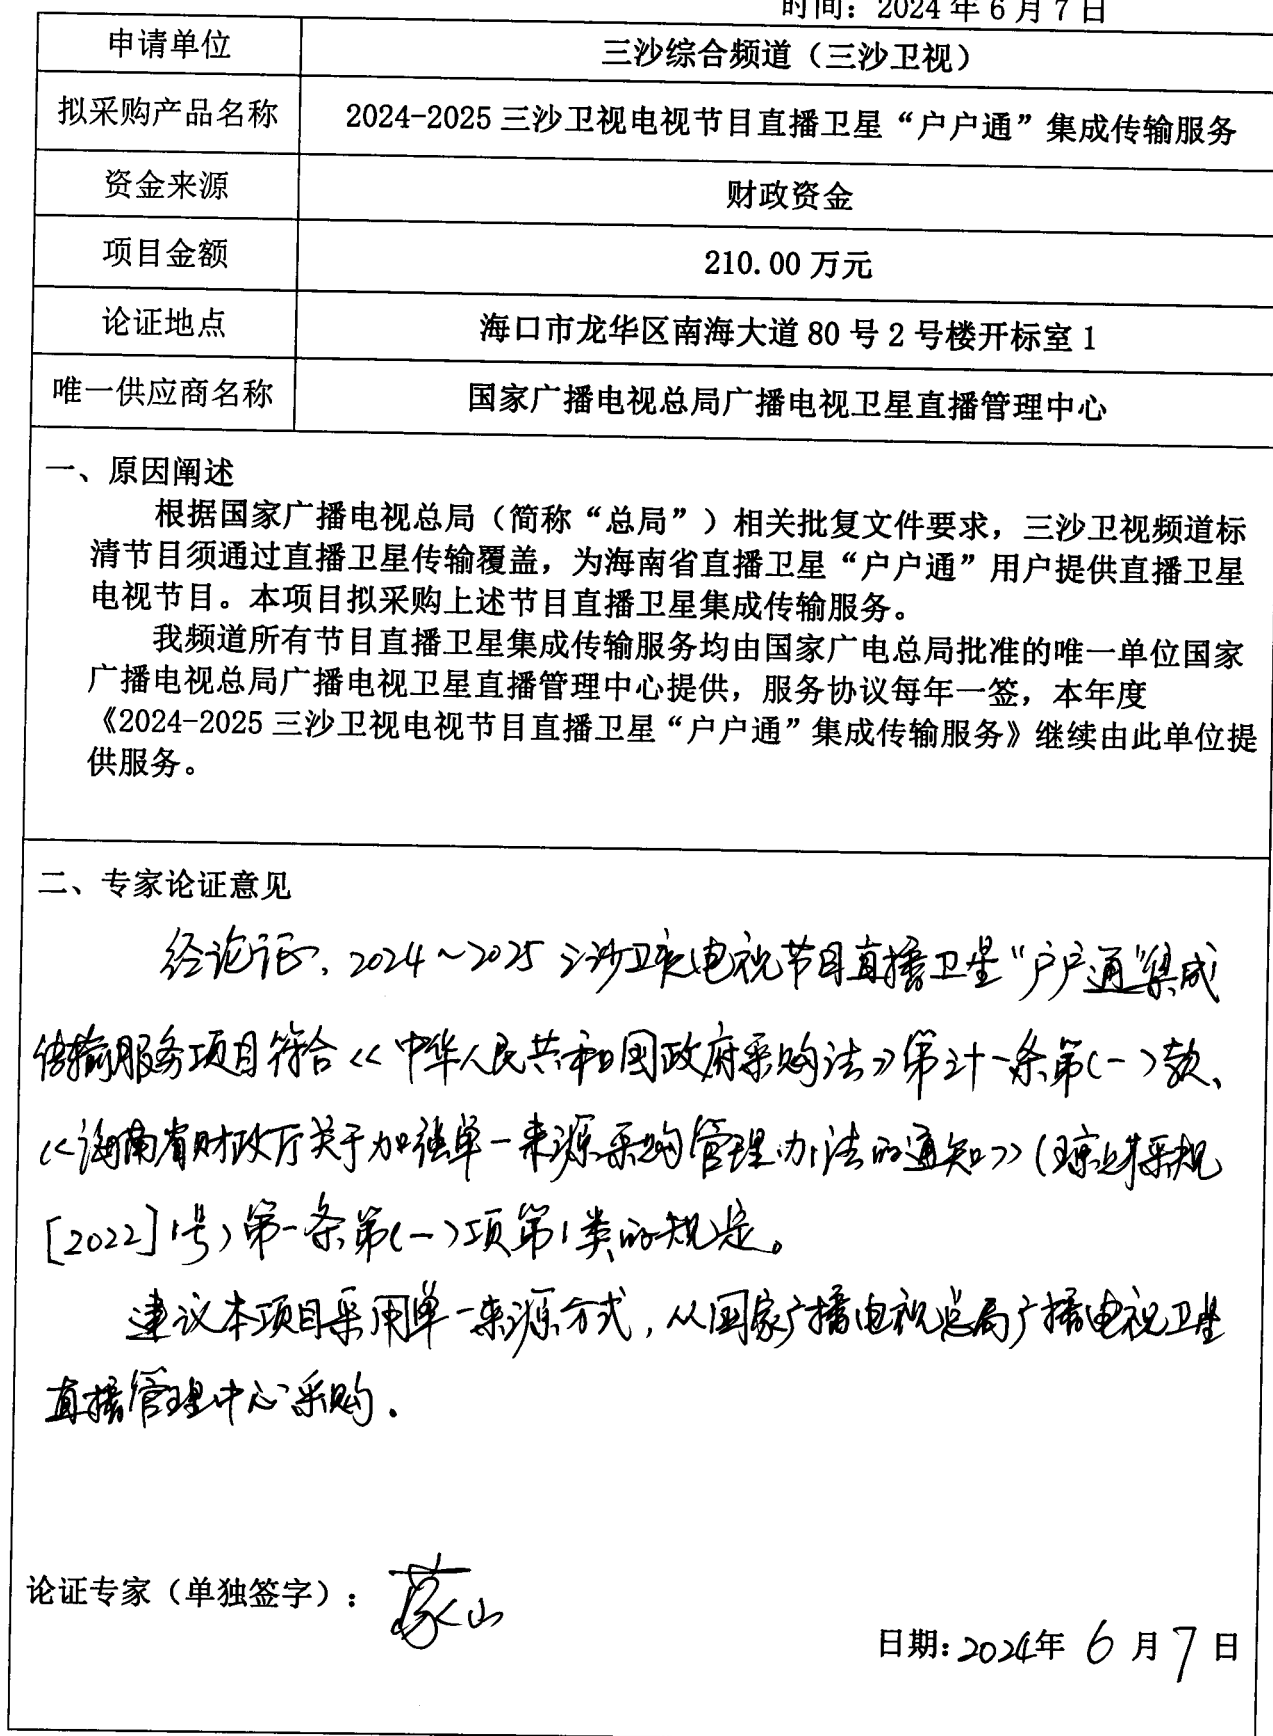 时间：2024 年 6 月 7 日
申请单位 三沙综合频道（三沙卫视）
拟采购产品名称 2024-2025 三沙卫视电视节目直播卫星“户户通”集成传输服务
资金来源 财政资金
项目金额 210.00 万元
论证地点 海口市龙华区南海大道 80 号 2 号楼开标室 1
唯一供应商名称 国家广播电视总局广播电视卫星直播管理中心
一、原因阐述
根据国家广播电视总局（简称“总局”）相关批复文件要求，三沙卫视频道标
清节目须通过直播卫星传输覆盖，为海南省直播卫星“户户通”用户提供直播卫星
电视节目。本项目拟采购上述节目直播卫星集成传输服务。
我频道所有节目直播卫星集成传输服务均由国家广电总局批准的唯一单位国家
广播电视总局广播电视卫星直播管理中心提供，服务协议每年一签，本年度
《2024-2025 三沙卫视电视节目直播卫星“户户通”集成传输服务》继续由此单位提
供服务。
二、专家论证意见
经论证，2024～2025三沙卫视电视节目直播卫星“户户通”集成
传输服务项目符合《中华人民共和国政府采购法》第三十一条第(一)款、
《海南省财政厅关于加强单一来源采购管理办法的通知》(琼财采规
[2022]1号)第一条第(一)项第1类的规定。
建议本项目采用单一来源方式，从国家广播电视总局广播电视卫星
直播管理中心采购.
论证专家（单独签字）：
日期:2024年 6 月 7 日